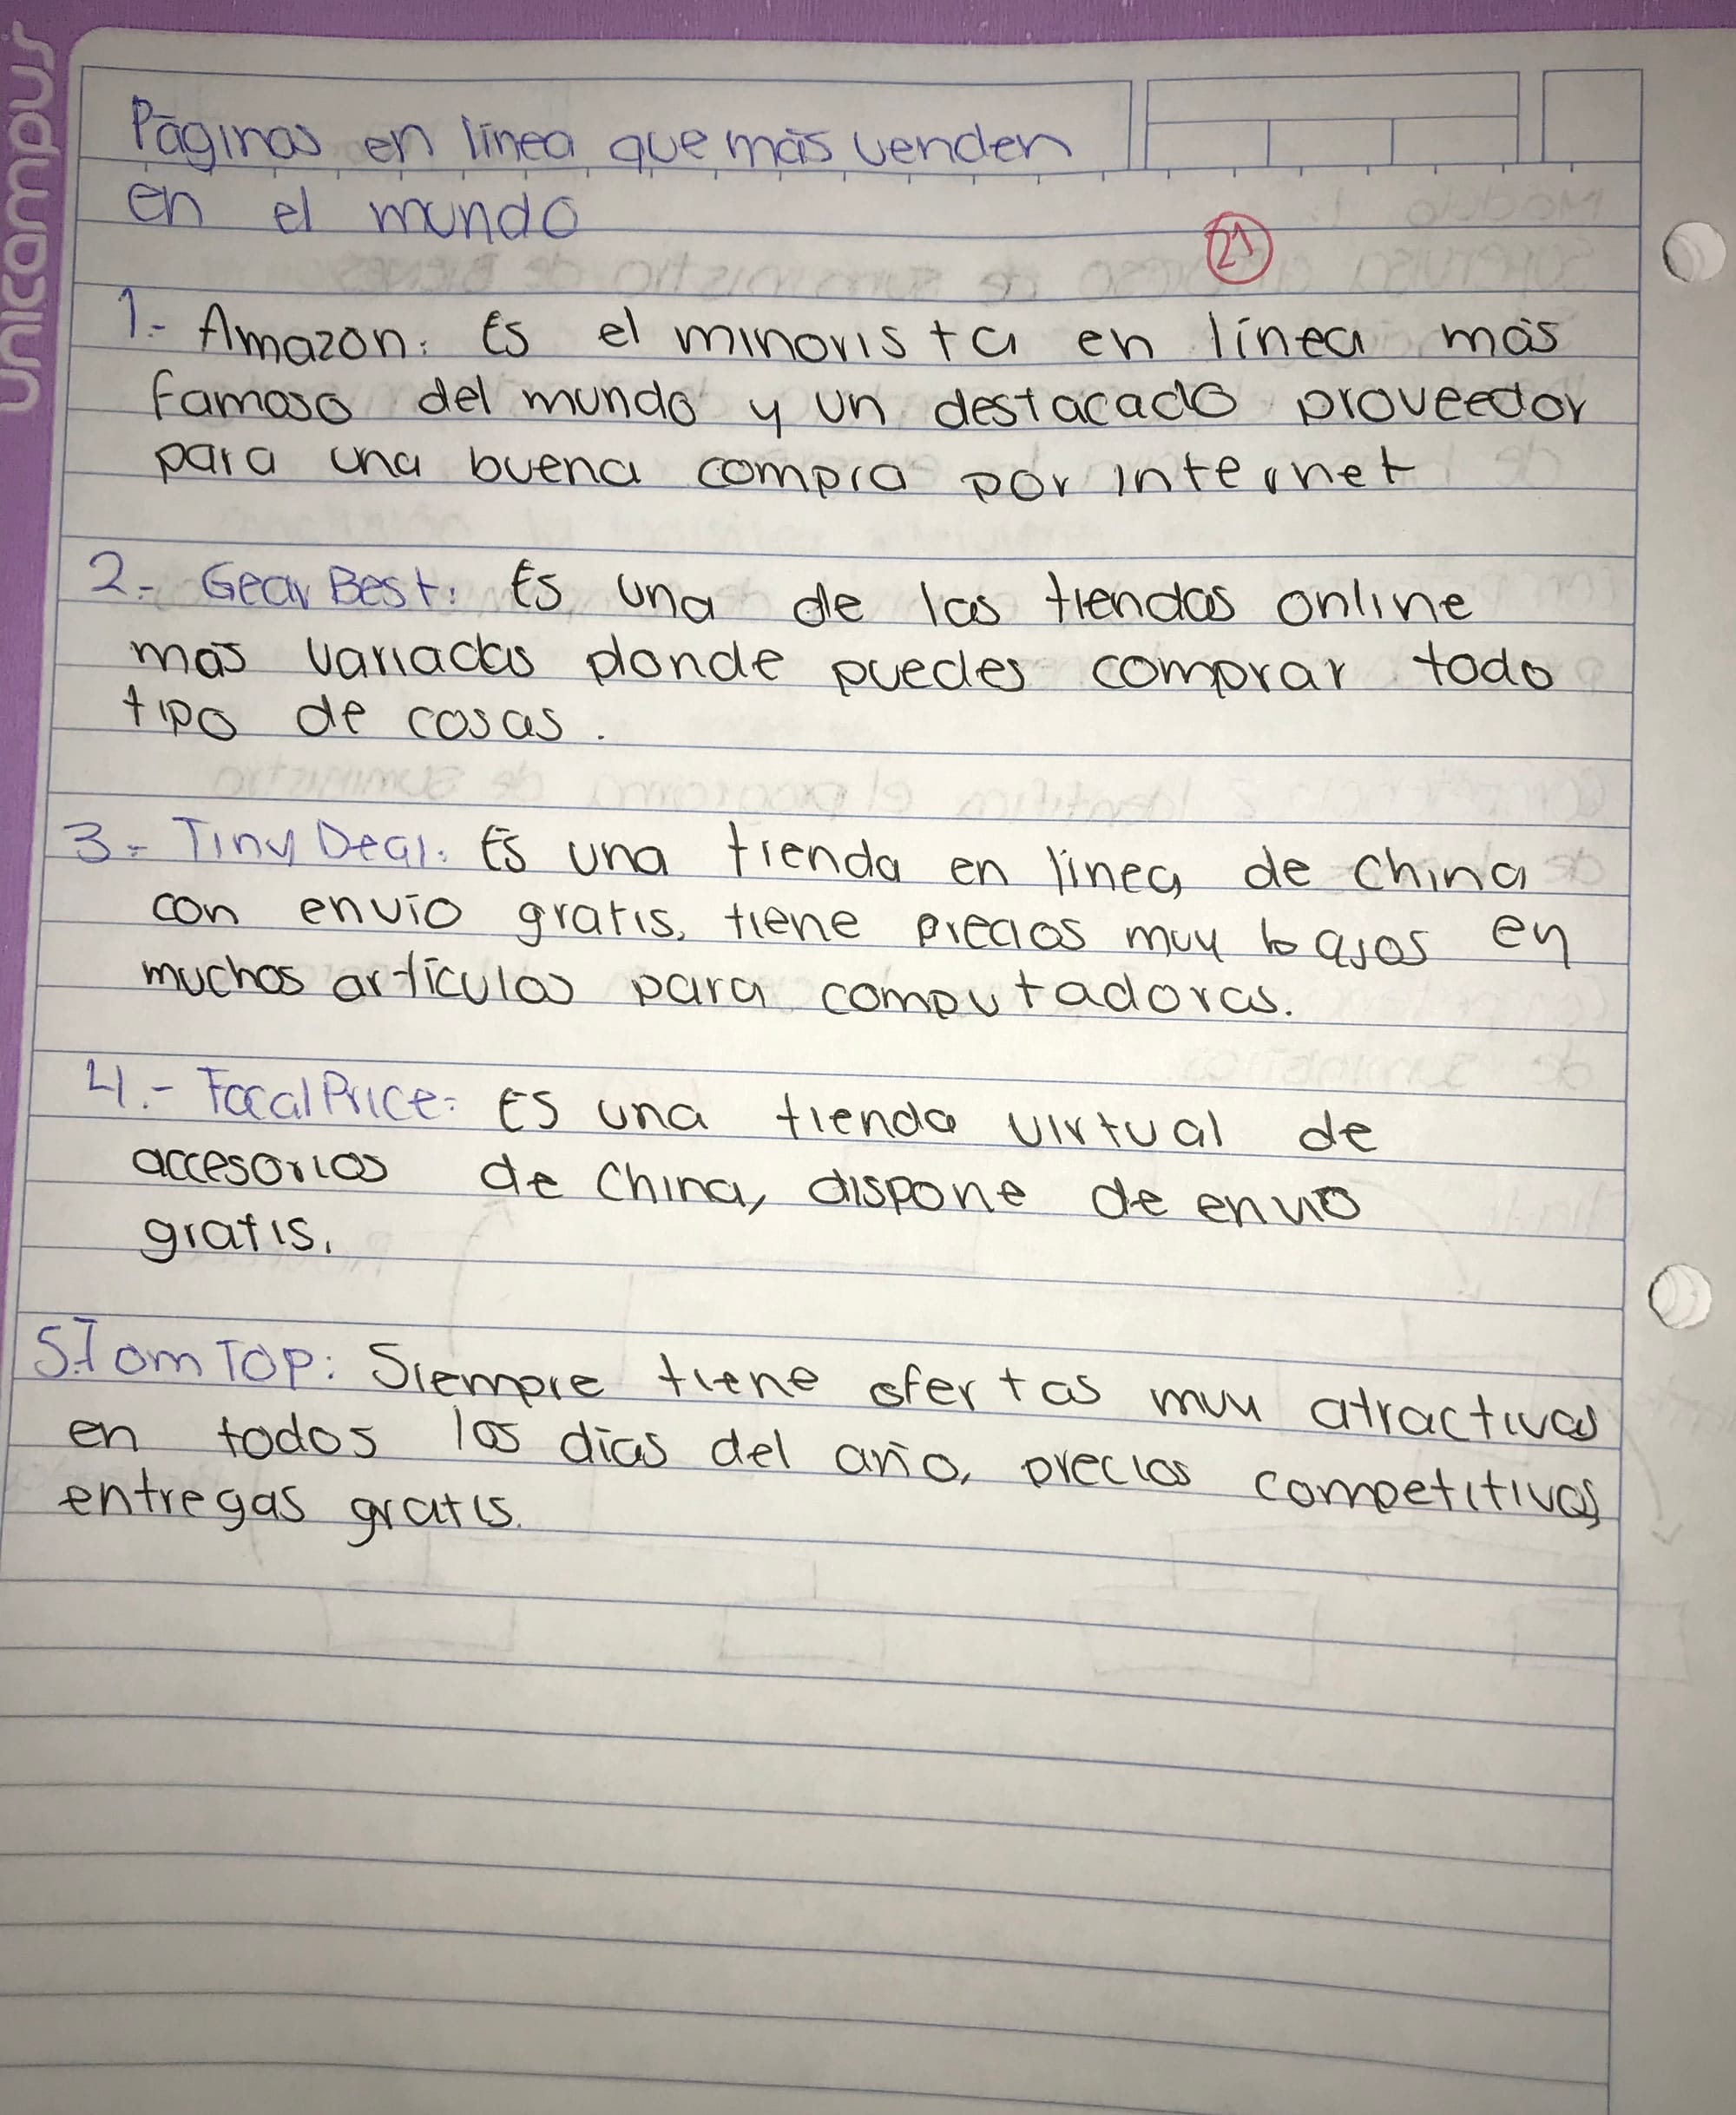 unicampus
Páginas en línea que más venden
en el mundo
21
1.- Amazon: Es el minorista en línea más
famoso del mundo y un destacado proveedor
para una buena compra por internet
2.- GearBest: Es una de las tiendas online
más variadas donde puedes comprar todo
tipo de cosas.
3.- TinyDeal: Es una tienda en línea, de China
con envío gratis, tiene precios muy bajos en
muchos artículos para computadoras.
4.- FocalPrice: Es una tienda virtual de
accesorios de China, dispone de envio
gratis.
5.- TomTop: Siempre tiene ofertas muy atractivas
en todos los días del año, precios competitivos,
entregas gratis.